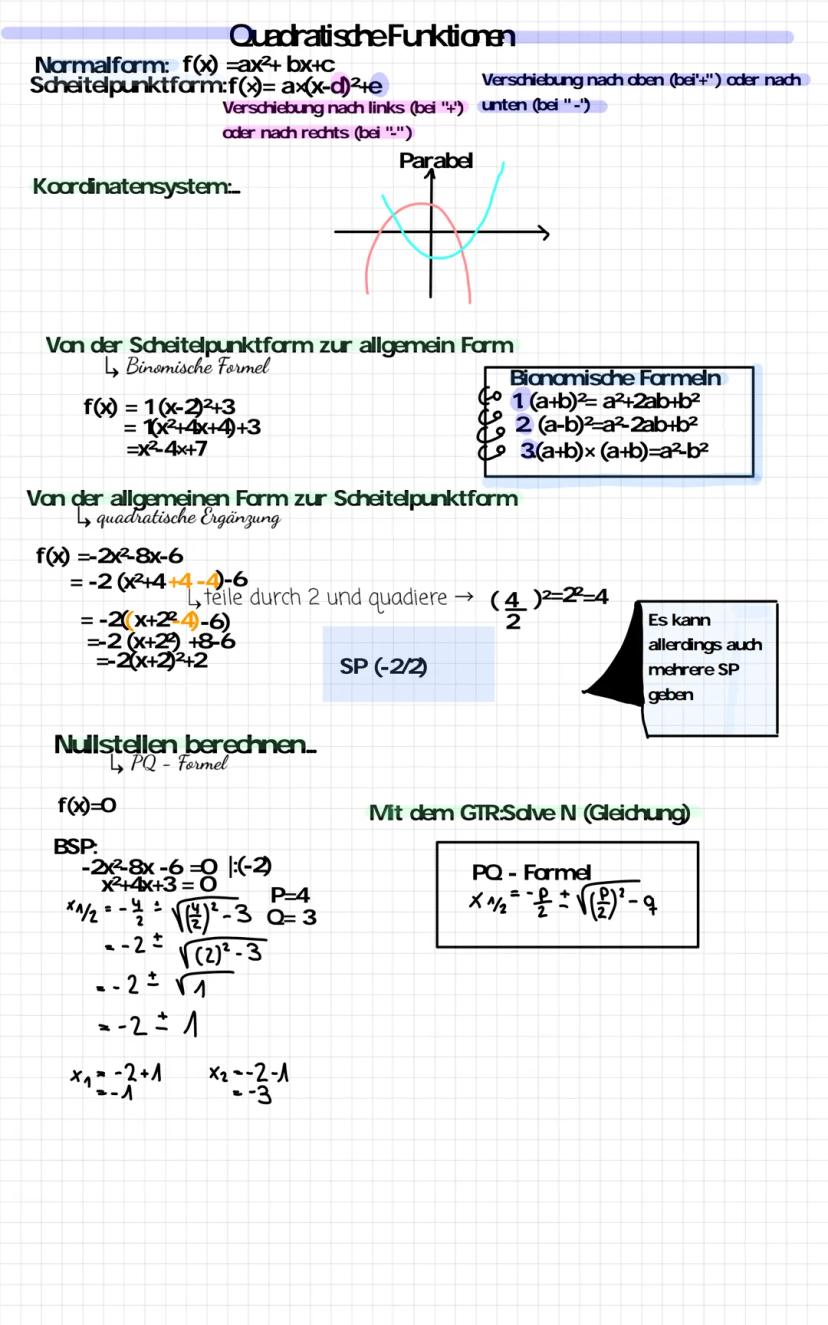 Quadratische Funktionen
Normalform: f(x) =ax²+ bx+c
Scheitelpunktform:f(x)= a×(x-d)²+e
Verschiebung nach oben (bei"+") oder nach
unten (bei " -")
Verschiebung nach links (bei "+")
oder nach rechts (bei "-")
Parabel
Koordinatensystem:..
Von der Scheitelpunktform zur allgemein Form
↳ Binomische Formel
f(x) = 1(x-2)²+3
= 1(x²+4x+4)+3
=x²-4x+7
Bionomische Formeln
1 (a+b)²= a²+2ab+b²
2 (a-b)²=a²-2ab+b²
3.(a+b)× (a+b)=a²-b²
Von der allgemeinen Form zur Scheitelpunktform
↳ quadratische Ergänzung
f(x) =-2x²-8x-6
= -2 (x²+4+4 -4)-6
↳teile durch 2 und quadiere → (4/2)²=2²=4
= -2((x+2² -4)-6)
=-2 (x+2²) +8-6
=-2(x+2)²+2
SP (-2/2)
Es kann
allerdings auch
mehrere SP
geben
Nullstellen berechnen...
↳ PQ - Formel
f(x)=0
Mit dem GTR:Solve N (Gleichung)
BSP:
-2x²-8x -6 =0 |:(-2)
x²+4x+3 = 0
P=4
Q= 3
x1/2 = -4/2 ± √(4/2)² - 3
= -2 ± √(2)² - 3
= -2 ± √1
= -2 ± 1
x₁ = -2+1
= -1
x₂ = -2-1
= -3
PQ - Formel
x1/2 = -p/2 ± √(p/2)² - q